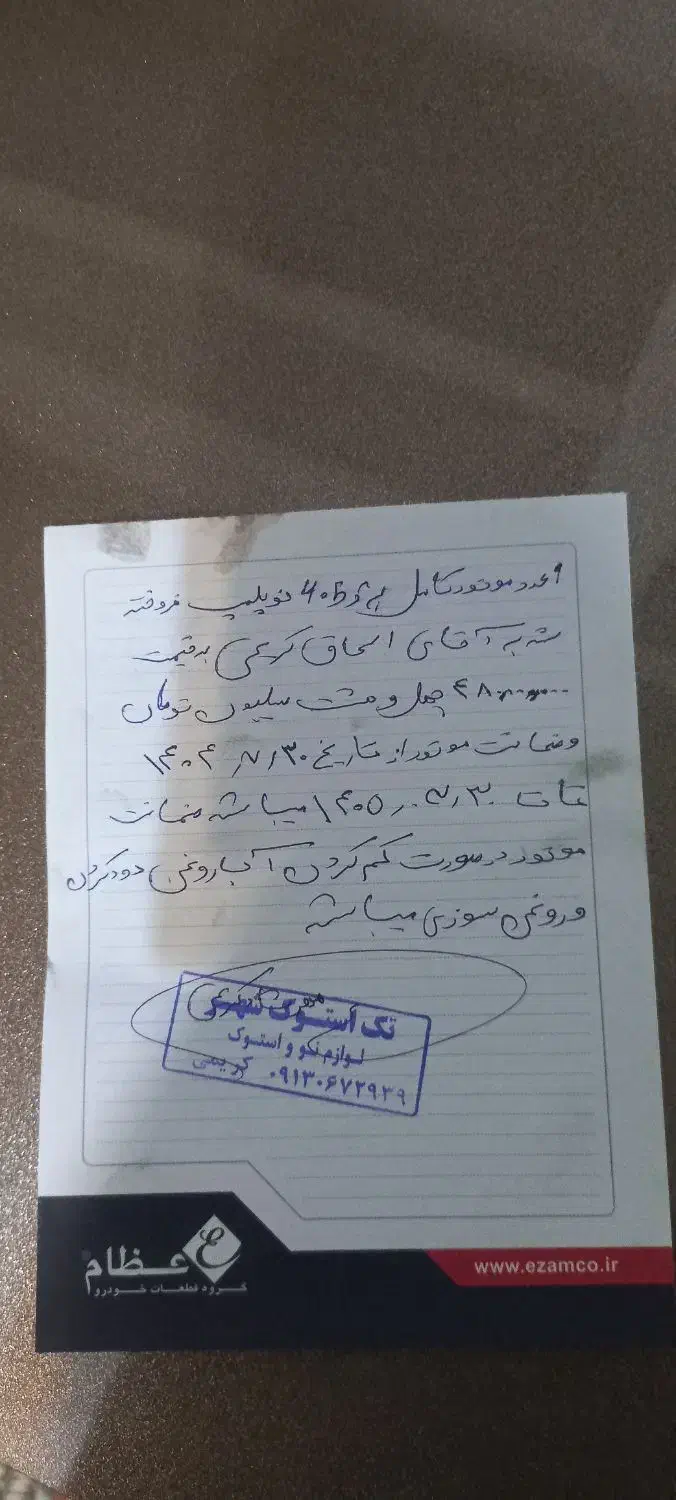 ۱ عدد موتور کامل پژو ۴۰۵ دو پلمپ فروخته
شد به آقای اسحاق کرمی به قیمت
۴۸۰۰۰۰۰۰ چهل و هشت میلیون تومان
و ضمانت موتور از تاریخ ۱۴۰۴/۷/۳۰
تا ۱۴۰۵/۷/۳۰ میباشد ضمانت
موتور در صورت کم کردن آب یا روغن دود کردن
و روغن سوزی میباشد
تک استوک
لوازم نکو و استوک
۰۹۱۳۰۶۷۲۹۳۹ کریمی
عظام
گروه قطعات خودرو
www.ezamco.ir